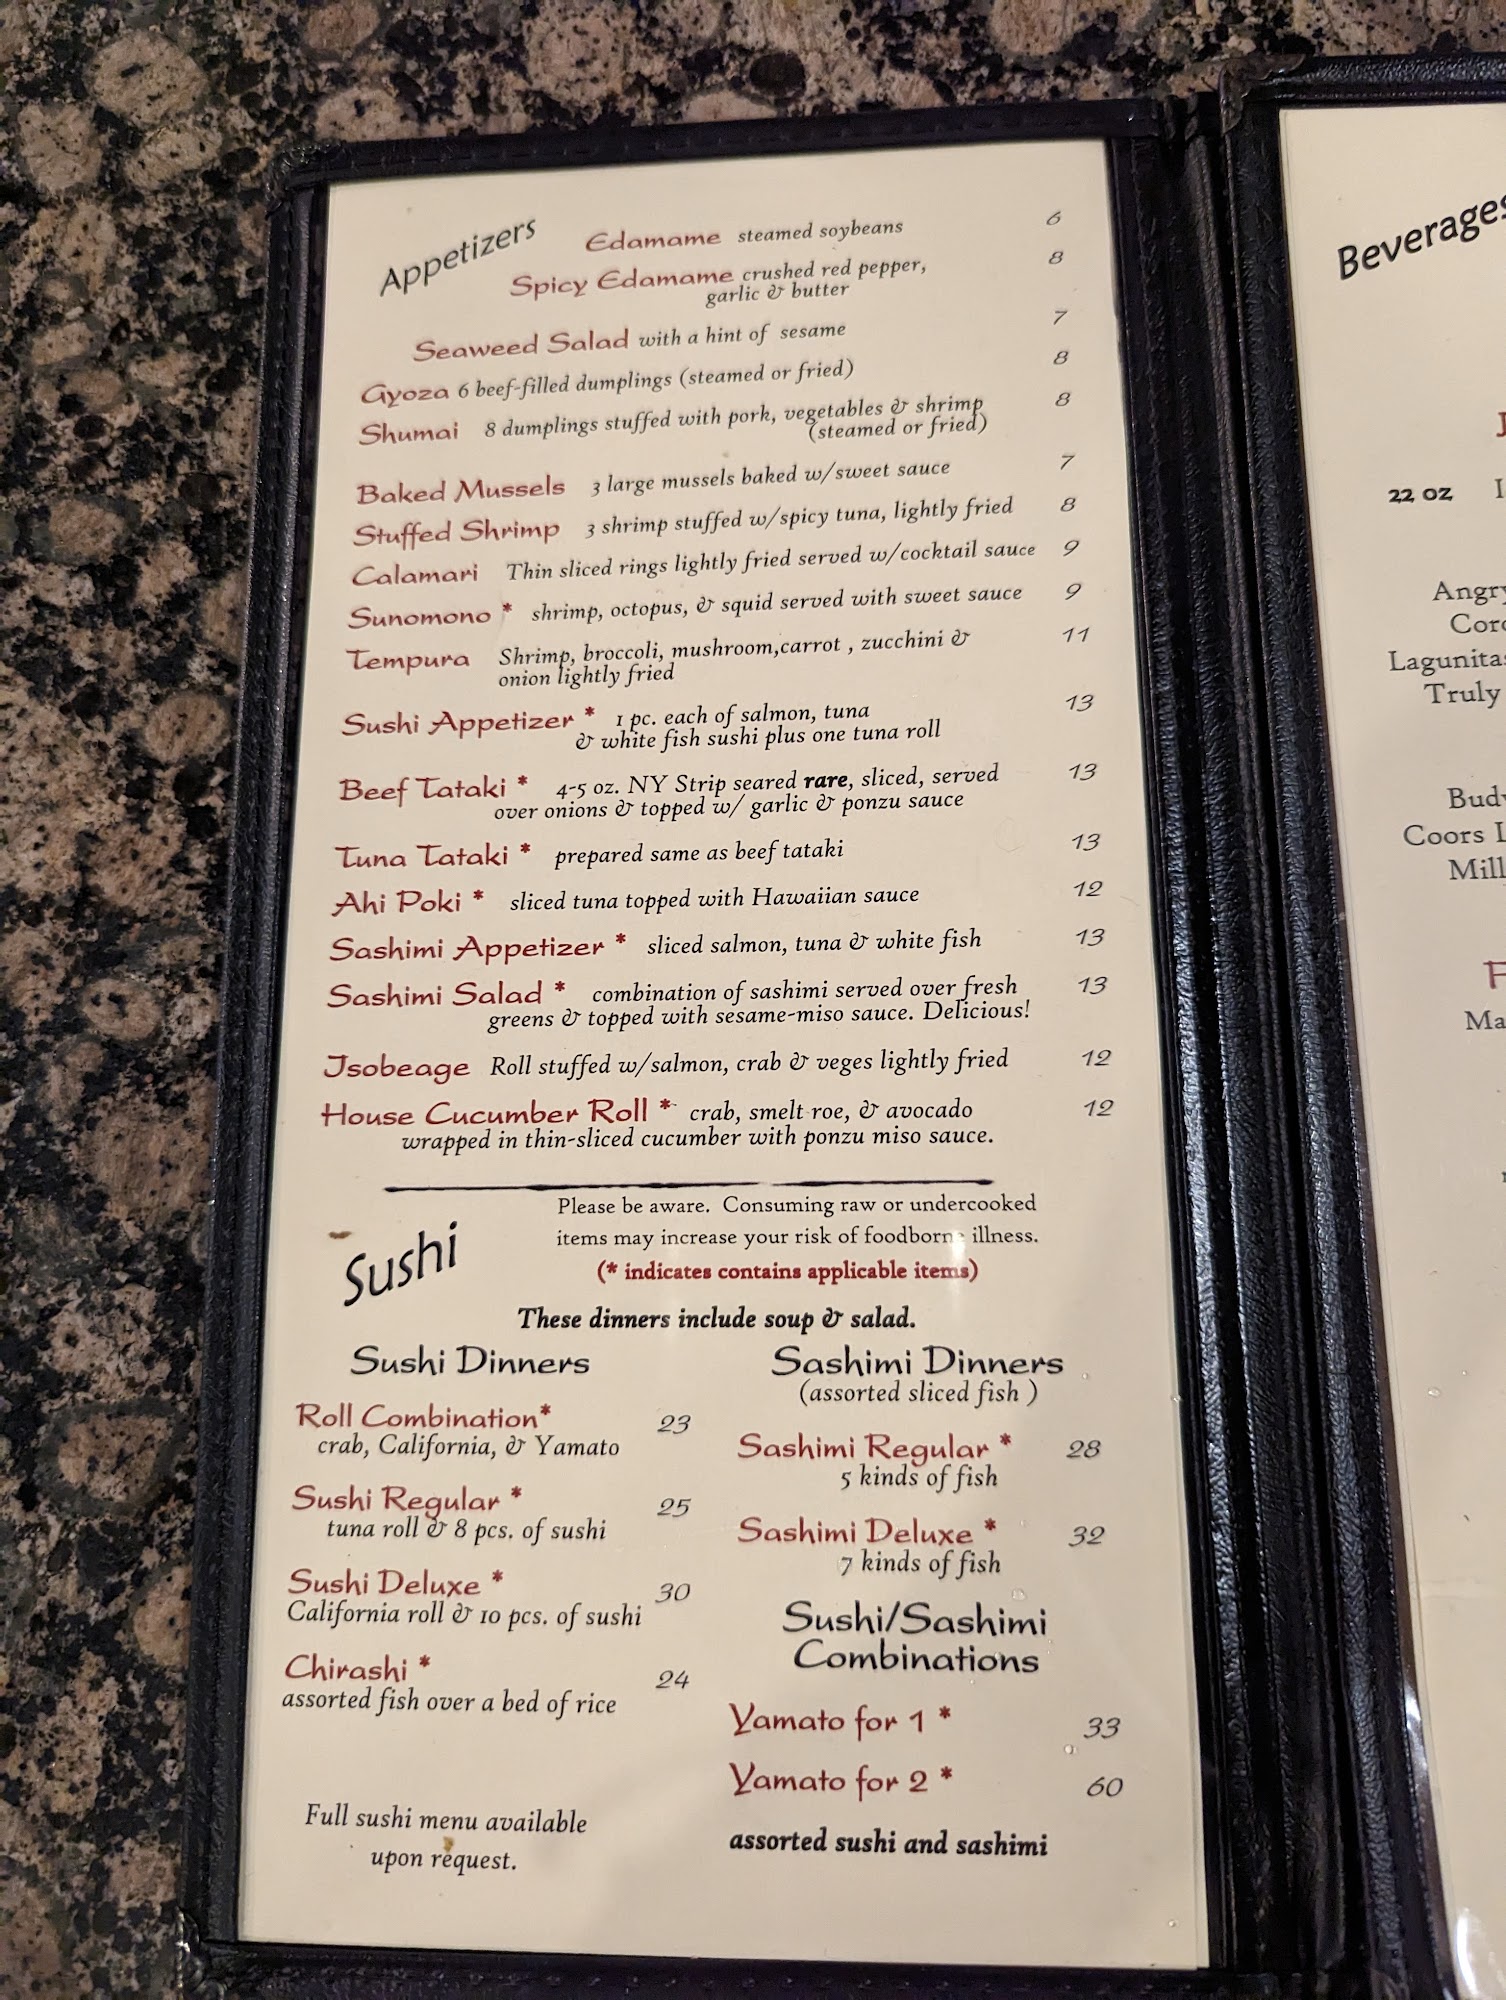 Appetizers
Edamame steamed soybeans 6
Spicy Edamame crushed red pepper, 8
garlic & butter
Seaweed Salad with a hint of sesame 7
Gyoza 6 beef-filled dumplings (steamed or fried) 8
Shumai 8 dumplings stuffed with pork, vegetables & shrimp 8
(steamed or fried)
Baked Mussels 3 large mussels baked w/sweet sauce 7
Stuffed Shrimp 3 shrimp stuffed w/spicy tuna, lightly fried 8
Calamari Thin sliced rings lightly fried served w/cocktail sauce 9
Sunomono * shrimp, octopus, & squid served with sweet sauce 9
Tempura Shrimp, broccoli, mushroom,carrot , zucchini & 11
onion lightly fried
Sushi Appetizer * 1 pc. each of salmon, tuna 13
& white fish sushi plus one tuna roll
Beef Tataki * 4-5 oz. NY Strip seared rare, sliced, served 13
over onions & topped w/ garlic & ponzu sauce
Tuna Tataki * prepared same as beef tataki 13
Ahi Poki * sliced tuna topped with Hawaiian sauce 12
Sashimi Appetizer * sliced salmon, tuna & white fish 13
Sashimi Salad * combination of sashimi served over fresh 13
greens & topped with sesame-miso sauce. Delicious!
Isobeage Roll stuffed w/salmon, crab & veges lightly fried 12
House Cucumber Roll * crab, smelt roe, & avocado 12
wrapped in thin-sliced cucumber with ponzu miso sauce.
Please be aware. Consuming raw or undercooked
items may increase your risk of foodborne illness.
(* indicates contains applicable items)
Sushi
These dinners include soup & salad.
Sushi Dinners
Roll Combination* 23
crab, California, & Yamato
Sushi Regular * 25
tuna roll & 8 pcs. of sushi
Sushi Deluxe * 30
California roll & 10 pcs. of sushi
Chirashi * 24
assorted fish over a bed of rice
Full sushi menu available
upon request.
Sashimi Dinners
(assorted sliced fish )
Sashimi Regular * 28
5 kinds of fish
Sashimi Deluxe * 32
7 kinds of fish
Sushi/Sashimi
Combinations
Yamato for 1 * 33
Yamato for 2 * 60
assorted sushi and sashimi
Beverages
22 oz
Lagunitas
Truly
Coors